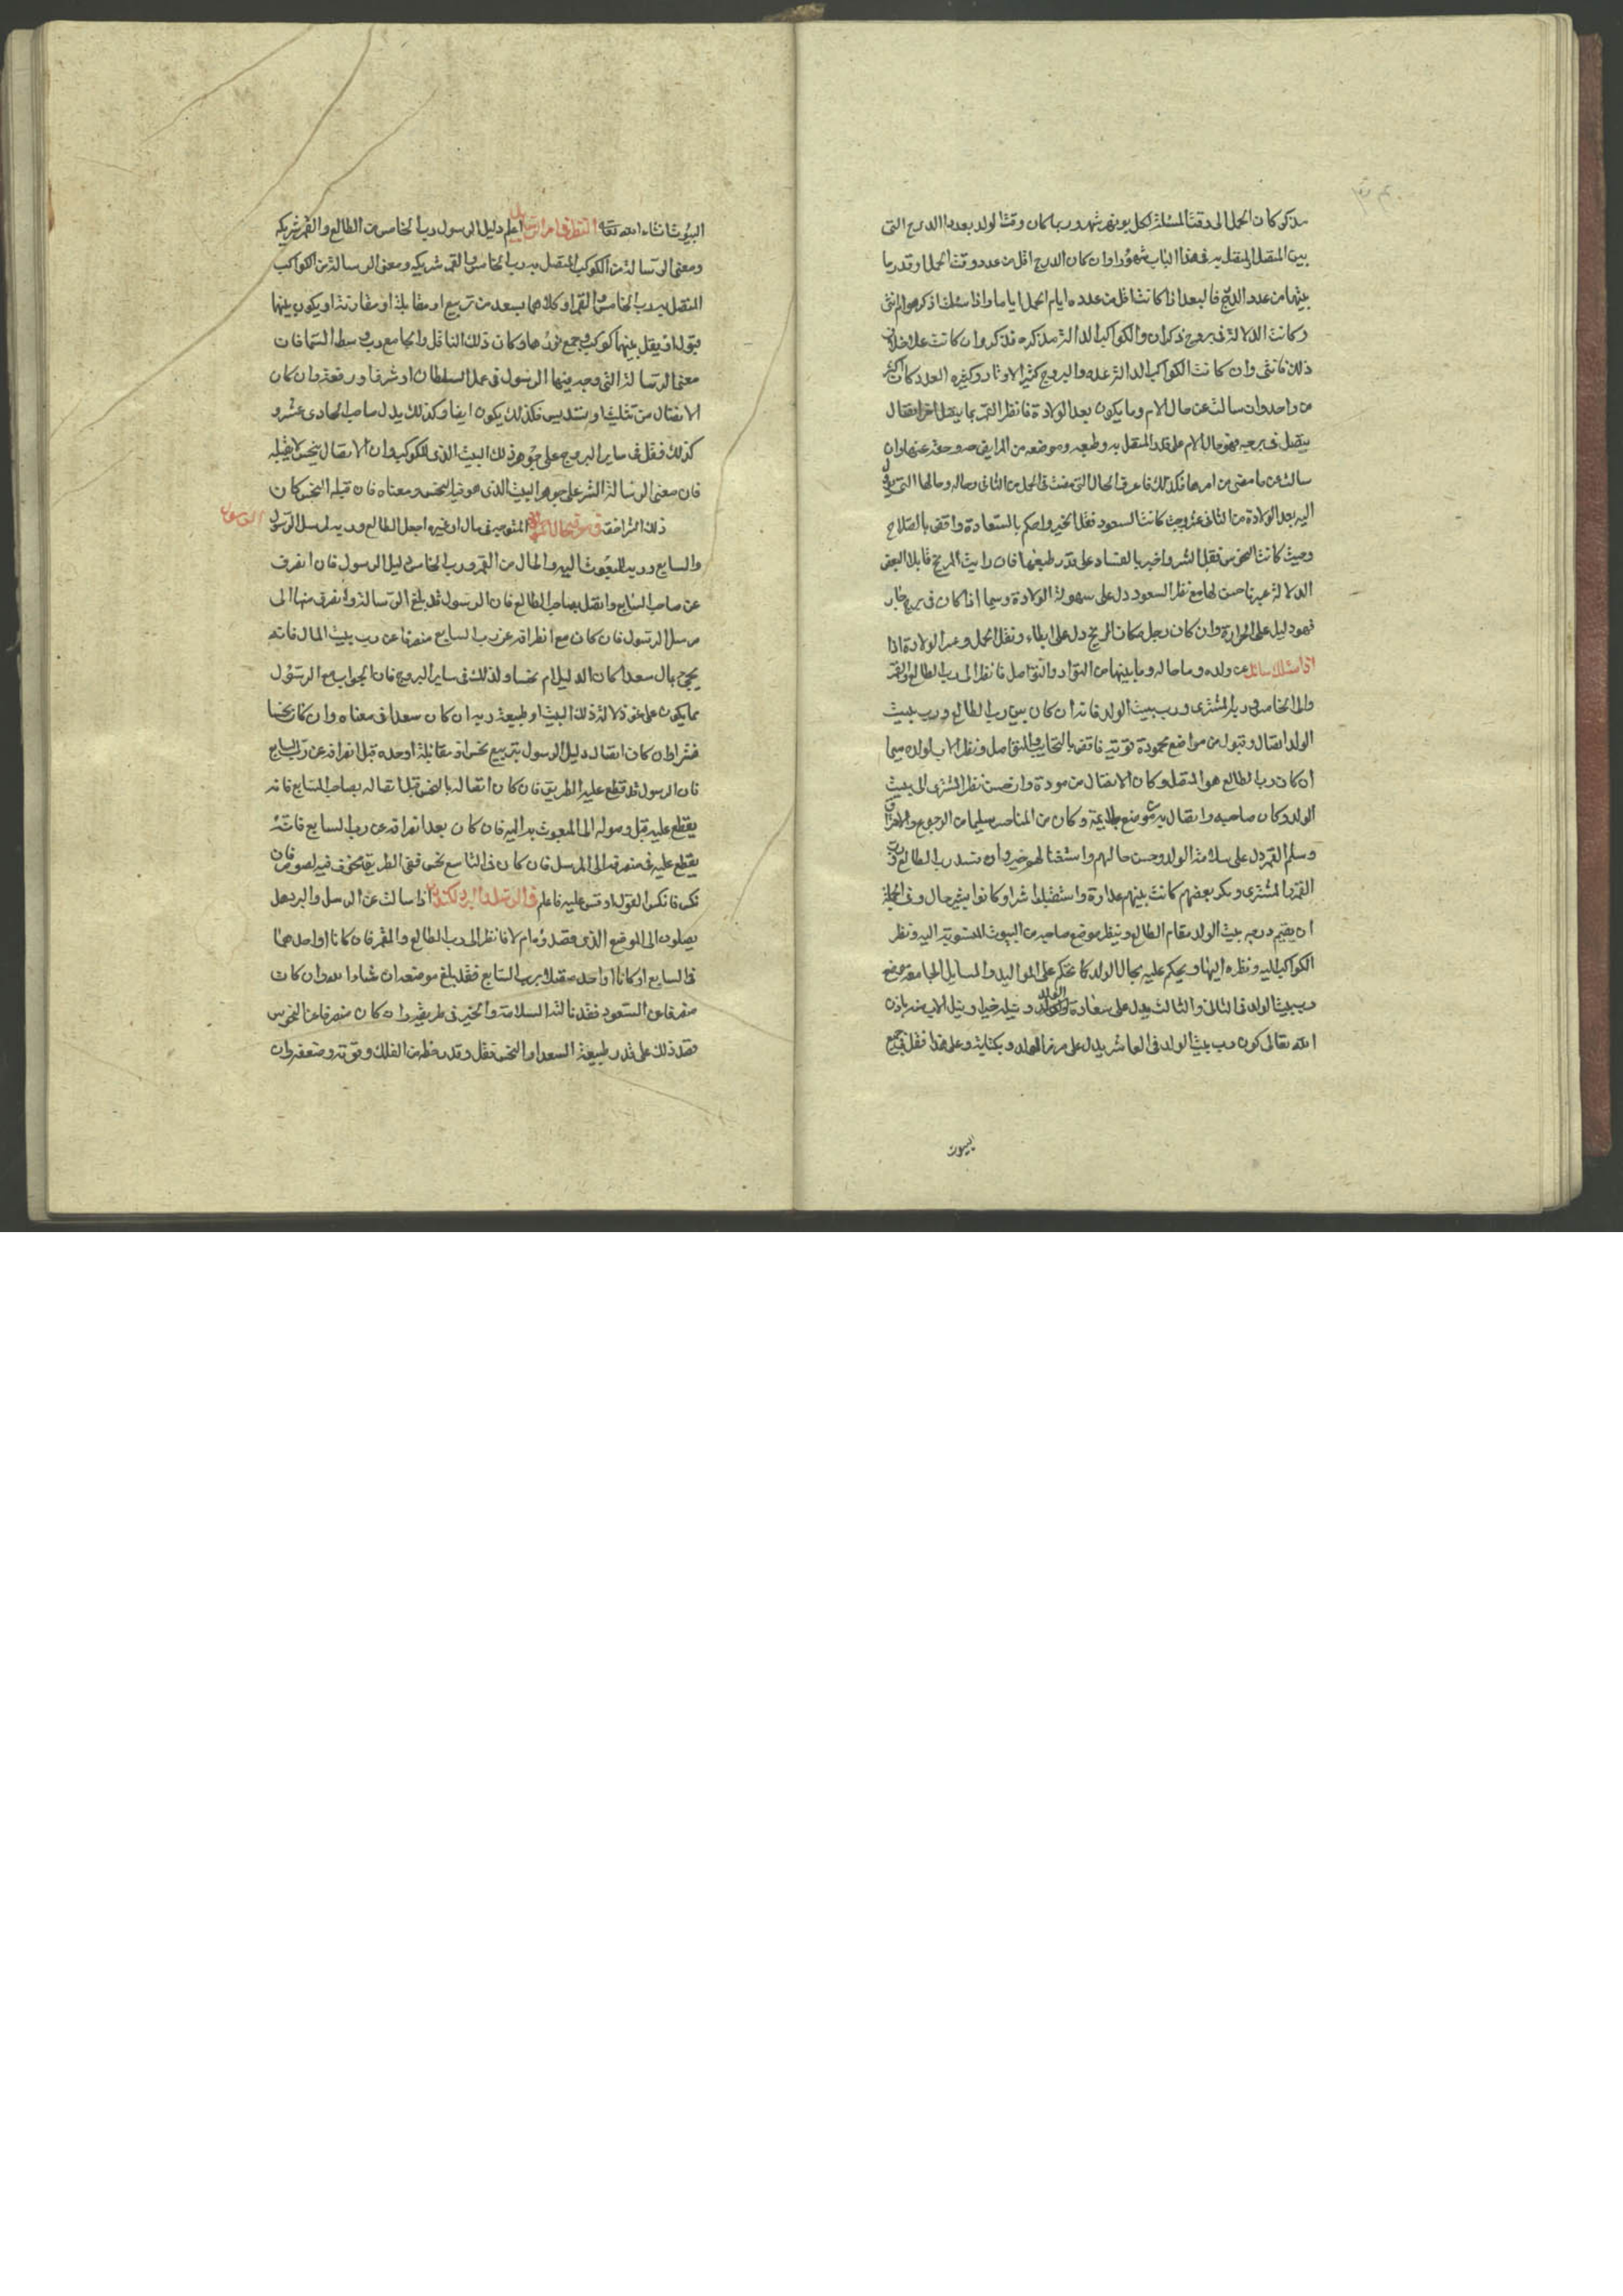 مذكر كان الحمل الى وقت المسئلة لكل يوم شهر وربما كان وقت الولد بعدد الدرج التى
بين المتصل والمتصل به فى هذا الباب شهورا وان كان الدرج اقل من عدد وقت الحمل وقدر ما
بينهما من عدد الدرج فالبعد اذا كانت اقل من عدده ايام الحمل اياما واذا سئلت اذكر هو ام انثى
وكانت الدلالة فى بروج ذكران والكواكب الدالة مذكره فذكر وان كانت على خلاف
ذلك فانثى وان كانت الكواكب الدالة عده والبروج كثيرا الاوتار وكثيره العدد كان اكثر
من واحد وان سالت عن حال الام وما يكون بعد الولادة فانظر القمر بما يتصل اخر اتصال
يتصل فى برجه فهو حال الام على قدر المتصل به وطبعه وموضعه من
سالت عن ما مضى من امرها فكذلك فاعرف الحال التى مضت فى الحمل من الثانى وحاله وحالها التى
اليه بعد الولادة من الثانى عشر وحيث كانت السعود فقل الخير واحكم بالسعادة واقض بالصلاح
وحيث كانت النحوس فقل الشر واخبر بالفساد على قدر طبعها فان رايت المريخ قابلا البعض
الدلالة غير ناحس لها مع نظر السعود دل على سهولة الولادة وسيما اذا كان فى برج حار
فهو دليل على الحرارة وان كان زحل مكان المريخ دل على ابطاء وثقل الحمل وعسر الولادة اذا
اذا سئلك سائل عن ولده وما حاله وما بينهما من التواد والتواصل فانظر الى رب الطالع والقمر
والى الخامس وربه والمشترى ورب بيت الولد فانه ان كان بين رب الطالع ورب بيت
الولد اتصال وقبول من مواضع محمودة قوية فاقض بالتحابب والتواصل ونظر الاب لولده سيما
ان كان رب الطالع هو المتصل وكان الاتصال من مودة وان حسن نظر المشترى الى بيت
الولد وكان صاحبه واتصال به موضع ملايمة وكان من المناحس سليما من الرجوع والاحتراق
وسلم القمر دل على سلامة الولد وحسن حالهم واستقبالهم خير وان فسد رب الطالع ورب
القمر والمشترى وبكر بعضهم كانت بينهم عداوة واستقبلوا شرا وكانوا بشر حال وفى الجملة
ان يقيم درجه بيت الولد مقام الطالع وينظر موضع صاحبه من البيوت المستوية اليه ونظر
الكواكب اليه ونظره اليها ويحكم عليه بحال الولد كما تحكم على المواليد والمسايل الجامعة موضع
رب بيت الولد فى الثانى والثالث يدل على سعادة الولد ونيله خيرا وينيل الاب منه باذن
الله تعالى كون رب بيت الولد فى العاشر يدل على الولد وعلى هذا فقل فى جميع
البيوت
البيوت ان شاء الله تعالى النظر فى امر الرسل اعلم دليل الرسول رب الخامس من الطالع والقمر شريكه
ومعنى الرسالة من الكوكب المتصل به رب الخامس والقمر شريكه ومعنى الرسالة من الكواكب
المتصل به رب الخامس والقمر او كلاهما بسعد من تربيع او مقابلة او مقارنة او يكون بينهما
قبول او ينقل بينهما كوكب ويجمع نورهما وكان ذلك الناقل والجامع رب وسط السما فان
معنى الرسالة التى وجه بها الرسول فى عمل السلطان او شرف او رفعة وان كان
الاتصال من تثليث او تسديس فكذلك يكون ايضا وكذلك يدل صاحب الحادى عشر و
كذلك فقل فى ساير البروج على جوهر ذلك البيت الذى للكوكب وان الاتصال بنحس لا يقبله
فان معنى الرسالة الشر على جوهر البيت الذى هو فيه النحس ومعناه فان قبله النحس كان
ذلك المتوجه فى مال او غيره اجعل الطالع وربه لمرسل الرسول
والسابع وربه للمبعوث اليه والمال من القمر ورب الخامس دليل الرسول فان انصرف
عن صاحب السابع واتصل بصاحب الطالع فان الرسول قد بلغ الرسالة وانصرف منها الى
مرسل الرسول فان كان مع انصرافه عن رب السابع منصرفا عن رب بيت المال فانه
يجىء بمال سعدا كان الدليل ام نحسا وكذلك فى ساير البروج فان الجواب مع الرسول
مما يكون على نحو دلالة ذلك البيت وطبيعة ربه ان كان سعدا فى معناه وان كان نحسا
فشرا وان كان اتصال دليل الرسول بتربيع نحس او مقابلة او جسده قبل انصرافه عن رب السابع
فان الرسول قد قطع عليه الطريق فان كان اتصاله بالنحس قبل اتصاله بصاحب السابع فانه
يقطع عليه قبل وصوله الى المبعوث به اليه فان كان بعد انصرافه عن رب السابع فانه
يقطع عليه فى منصرفه الى المرسل فان كان فى التاسع نحس ففى الطريق مخوف فيه لصوص فان
نكس فانكس القول او قس عليه فاعلم فى الرسل والبرد اذا سالت عن الرسل والبرد هل
يصلون الى الموضع الذى قصدوه ام لا فانظر الى رب الطالع والقمر فان كانا او احدهما
فى السابع او كانا او احدهما متصلا برب السابع فقد بلغ موضعه ان شاء الله وان كان
منصرفا عن السعود فقد نالته السلامة والخير فى طريقه وان كان منصرفا عن النحوس
فضد ذلك على قدر طبيعة السعد او النحس فقل وقدر حظه من الفلك وقوته وضعفه وان